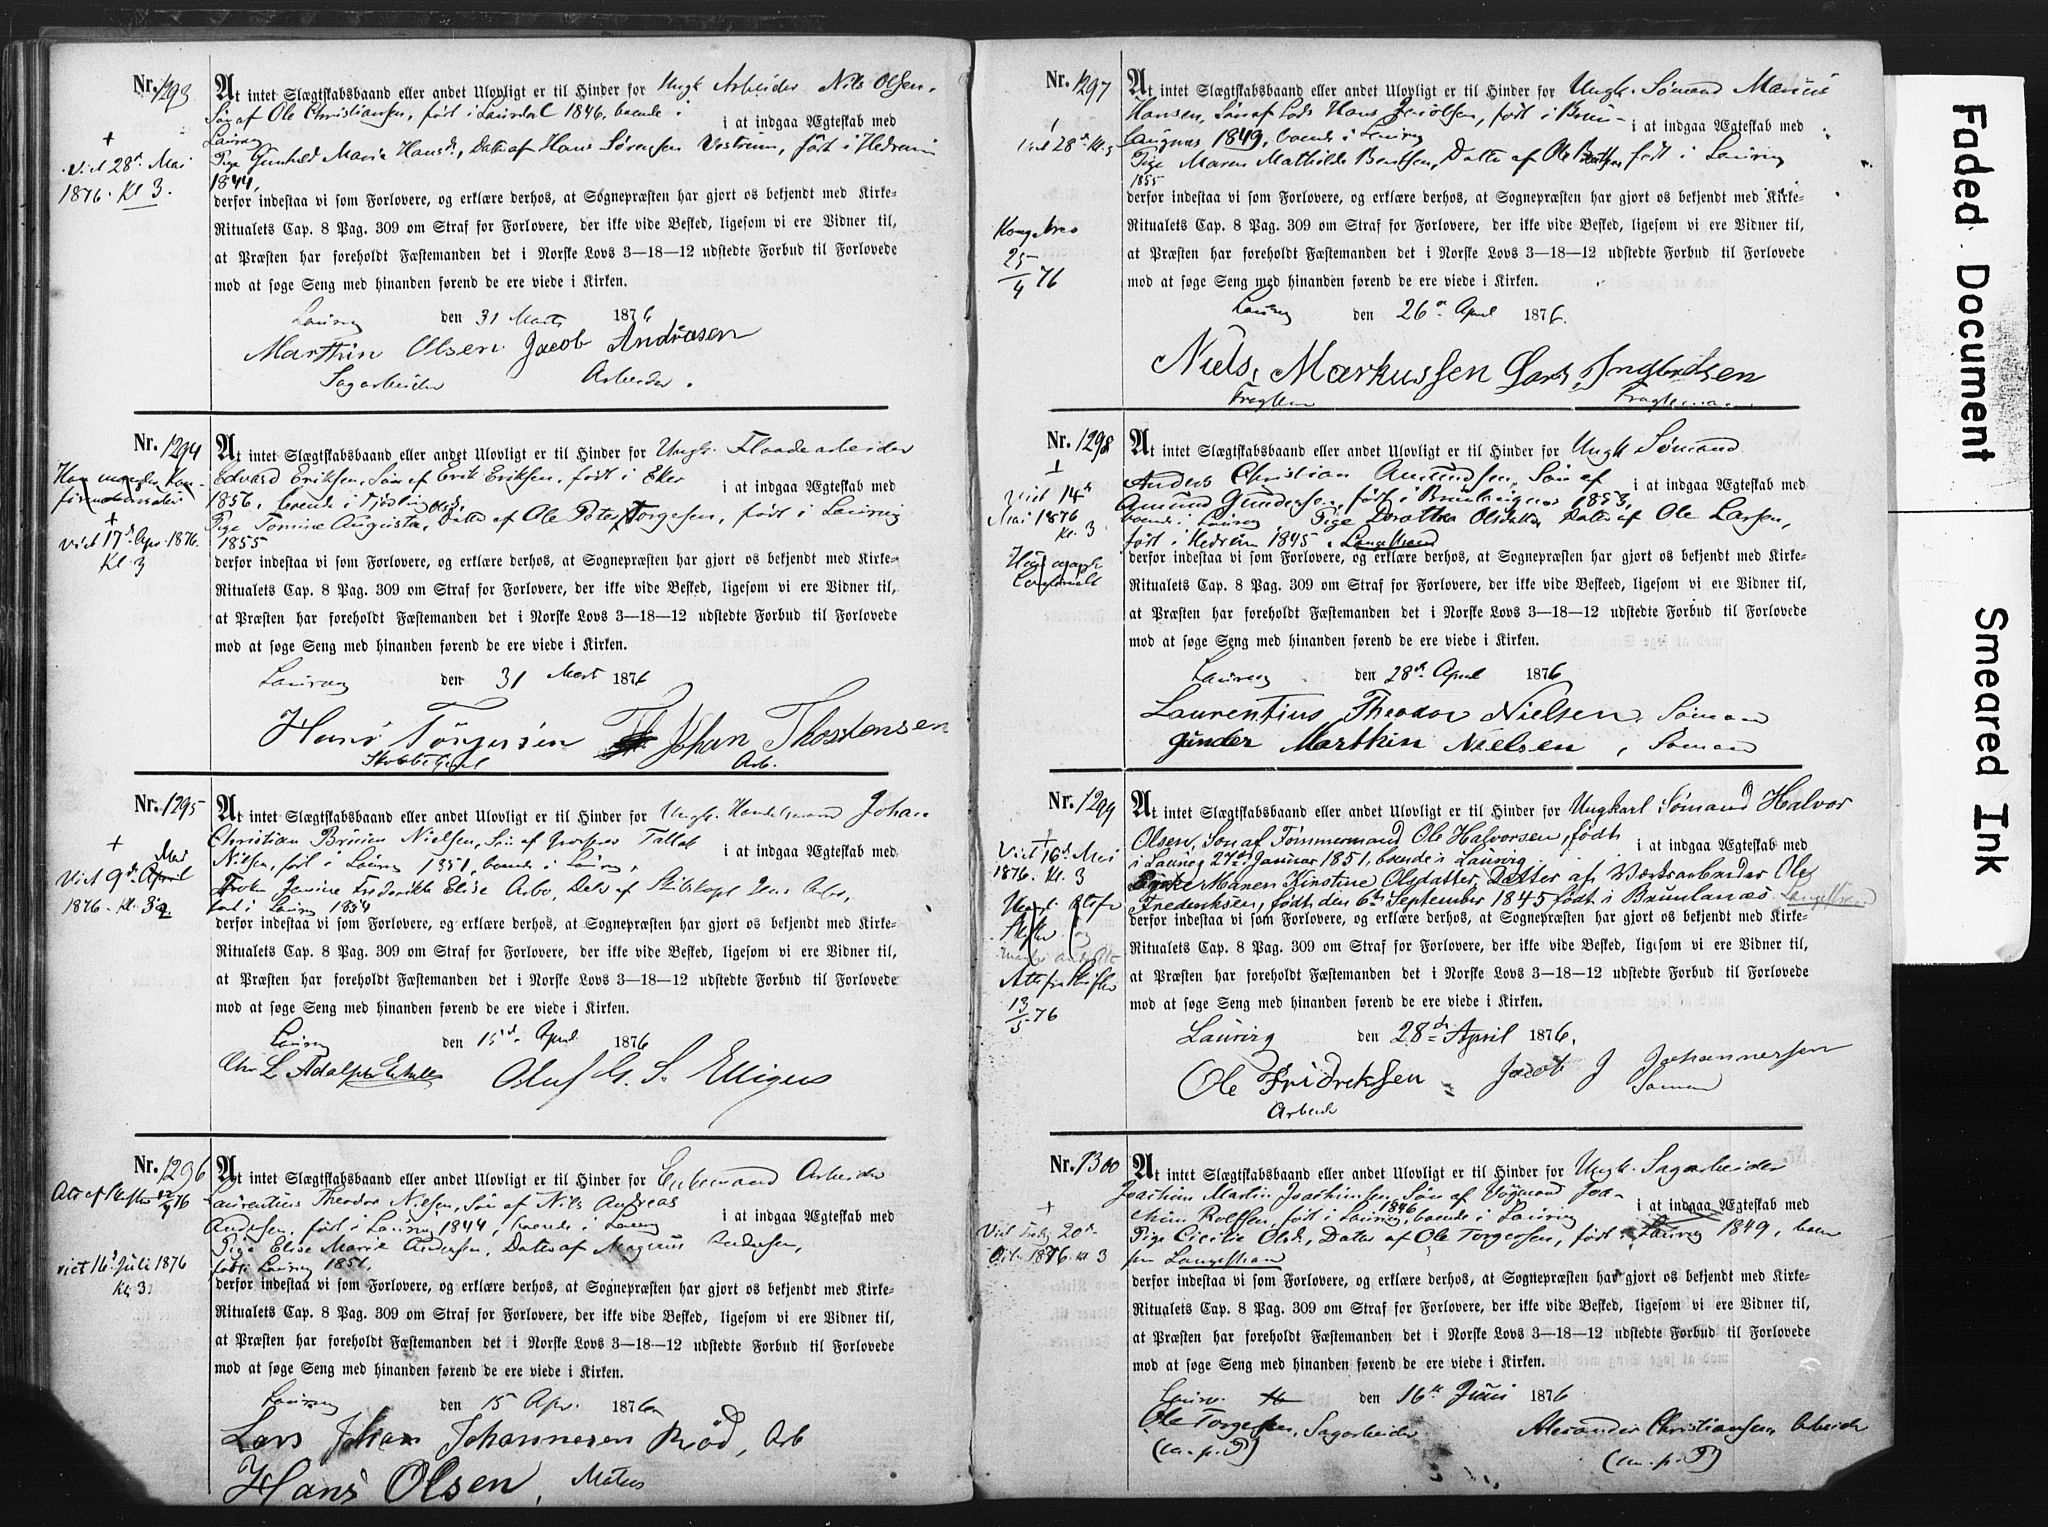 Nr. 1293
At intet Slægtskabsbaand eller andet Ulovligt er til Hinder for Ungk. Arbeider Nils Olsen,
Søn af Ole Christiansen, født i Laurdal 1846, boende i
Laurvig i at indgaa Ægteskab med
Pige Gunhild Marie Hansd., Datter af Hans Sørensen Vestrum, født i Hedrum
1844,
derfor indestaa vi som Forlovere, og erklære derhos, at Sognepræsten har gjort os bekjendt med Kirke-
Ritualets Cap. 8 Pag. 309 om Straf for Forlovere, der ikke vide Besked, ligesom vi ere Vidner til,
at Præsten har foreholdt Fæstemanden det i Norske Lovs 3—18—12 udstedte Forbud til Forlovede
mod at søge Seng med hinanden førend de ere viede i Kirken.
Laurvig den 31 Marts 1876
Marthin Olsen Jacob Andreasen
Sagarbeider Arbeider.
+
Viet 28de Mai
1876. Kl 3.
Nr. 1294
At intet Slægtskabsbaand eller andet Ulovligt er til Hinder for Ungk. Flaadearbeider
Edvard Eriksen, Søn af Erik Eriksen, født i Eker
1856, boende i Tjølling i at indgaa Ægteskab med
Pige Tomine Augusta Olsd., Datter af Ole Peter Torgersen, født i Laurvig
1855
derfor indestaa vi som Forlovere, og erklære derhos, at Sognepræsten har gjort os bekjendt med Kirke-
Ritualets Cap. 8 Pag. 309 om Straf for Forlovere, der ikke vide Besked, ligesom vi ere Vidner til,
at Præsten har foreholdt Fæstemanden det i Norske Lovs 3—18—12 udstedte Forbud til Forlovede
mod at søge Seng med hinanden førend de ere viede i Kirken.
Laurvig den 31 Marts 1876
Hans Törgersen Johan Thostensen
Arb.
Han mangler Kon-
firmationsattest
+
viet 17de Apr. 1876.
Kl. 3
Nr. 1295
At intet Slægtskabsbaand eller andet Ulovligt er til Hinder for Ungk. Handelsmand Johan
Christian Brunn Nielsen, Søn af
Nilsen, født i Laurvig 1851, boende i Laurvig, i at indgaa Ægteskab med
Frøken Janine Frederikke Elise Arbo, Datter af Skibskapt. Arbo,
født i Laurvig 1854
derfor indestaa vi som Forlovere, og erklære derhos, at Sognepræsten har gjort os bekjendt med Kirke-
Ritualets Cap. 8 Pag. 309 om Straf for Forlovere, der ikke vide Besked, ligesom vi ere Vidner til,
at Præsten har foreholdt Fæstemanden det i Norske Lovs 3—18—12 udstedte Forbud til Forlovede
mod at søge Seng med hinanden førend de ere viede i Kirken.
Laurvig den 15d. April 1876
Oluf G. S. Elligers
+ Mai
Viet 9de April
1876. Kl. 3
Nr. 1296
At intet Slægtskabsbaand eller andet Ulovligt er til Hinder for Enkemand Arbeider
Laurentius Theodor Nilsen, Søn af Nils Andreas
Andersen, født i Laurvig 1844, boende i Laurvig i at indgaa Ægteskab med
Pige Elise Marie Andersen, Datter af Magnus Andersen,
født i Laurvig 1851,
derfor indestaa vi som Forlovere, og erklære derhos, at Sognepræsten har gjort os bekjendt med Kirke-
Ritualets Cap. 8 Pag. 309 om Straf for Forlovere, der ikke vide Besked, ligesom vi ere Vidner til,
at Præsten har foreholdt Fæstemanden det i Norske Lovs 3—18—12 udstedte Forbud til Forlovede
mod at søge Seng med hinanden førend de ere viede i Kirken.
Laurvig den 15 Apr. 1876
Lars Johan Johannesen Rød, Arb
Hans Olsen,
viet 16d Juli 1876
Kl. 3.
Nr. 1297
At intet Slægtskabsbaand eller andet Ulovligt er til Hinder for Ungk. Sømand Marius
Hansen, Søn af Lods Hans Jacobsen, født i Brun-
laugnæs 1849, boende i Laurvig i at indgaa Ægteskab med
Pige Maren Mathilde Bentsen, Datter af Ole Bentsen født i Laurvig
1855
derfor indestaa vi som Forlovere, og erklære derhos, at Sognepræsten har gjort os bekjendt med Kirke-
Ritualets Cap. 8 Pag. 309 om Straf for Forlovere, der ikke vide Besked, ligesom vi ere Vidner til,
at Præsten har foreholdt Fæstemanden det i Norske Lovs 3—18—12 udstedte Forbud til Forlovede
mod at søge Seng med hinanden førend de ere viede i Kirken.
Laurvig den 26de April 1876.
Niels Markussen Lars Ingbretsen
Fragtem. Fragtemann
25/4 76
Nr. 1298
At intet Slægtskabsbaand eller andet Ulovligt er til Hinder for Ungk Sømand
Anders Christian Amundsen, Søn af
Amund Gundersen, født i Brunlaugnæs 1853, i at indgaa Ægteskab med
boende i Laurvig, Pige Dorothea Olsdatter Datter af Ole Larsen,
født i Hedrum 1845. Langestrand
derfor indestaa vi som Forlovere, og erklære derhos, at Sognepræsten har gjort os bekjendt med Kirke-
Ritualets Cap. 8 Pag. 309 om Straf for Forlovere, der ikke vide Besked, ligesom vi ere Vidner til,
at Præsten har foreholdt Fæstemanden det i Norske Lovs 3—18—12 udstedte Forbud til Forlovede
mod at søge Seng med hinanden førend de ere viede i Kirken.
Laurvig den 28de April 1876
Laurentius Theodor Nielsen, Sömand
Gunder Marthin Nielsen, Sömand
Viet 14de
Mai 1876
Kl. 3
Nr. 1299
At intet Slægtskabsbaand eller andet Ulovligt er til Hinder for Ungkarl Sømand Halvor
Olsen, Søn af Tømmermand Ole Halvorsen, født
i Laurvig 27de Januar 1851, boende i Laurvig i at indgaa Ægteskab med
Maren Kirstine Olsdatter, Datter af Værksarbeider Ole
Frederiksen, født den 6te September 1845 født i Brunlanæs Langestrand
derfor indestaa vi som Forlovere, og erklære derhos, at Sognepræsten har gjort os bekjendt med Kirke-
Ritualets Cap. 8 Pag. 309 om Straf for Forlovere, der ikke vide Besked, ligesom vi ere Vidner til,
at Præsten har foreholdt Fæstemanden det i Norske Lovs 3—18—12 udstedte Forbud til Forlovede
mod at søge Seng med hinanden førend de ere viede i Kirken.
Laurvig den 28de April 1876.
Ole Fridreksen Jacob J Johannersen
Arbeid Sömand
+
Viet 16de Mai
1876. Kl. 3
13/5 76
Nr. 1300
At intet Slægtskabsbaand eller andet Ulovligt er til Hinder for Ungk. Sagarbeider
Joachim Martin Joachimsen, Søn af Joa-
chim Rolfsen, født i Laurvig 1846, boende i Laurvig i at indgaa Ægteskab med
Pige Cicilie Olsd., Datter af Ole Torgersen, født i Laurvig 1849, boen
paa Langestrand
derfor indestaa vi som Forlovere, og erklære derhos, at Sognepræsten har gjort os bekjendt med Kirke-
Ritualets Cap. 8 Pag. 309 om Straf for Forlovere, der ikke vide Besked, ligesom vi ere Vidner til,
at Præsten har foreholdt Fæstemanden det i Norske Lovs 3—18—12 udstedte Forbud til Forlovede
mod at søge Seng med hinanden førend de ere viede i Kirken.
Laurv. den 16de Juni 1876
Ole Torgersen, Sagarbeider Alexander Christiansen, Arbeider
(m. p. P) (m. p. P)
Faded Document
Smeared Ink